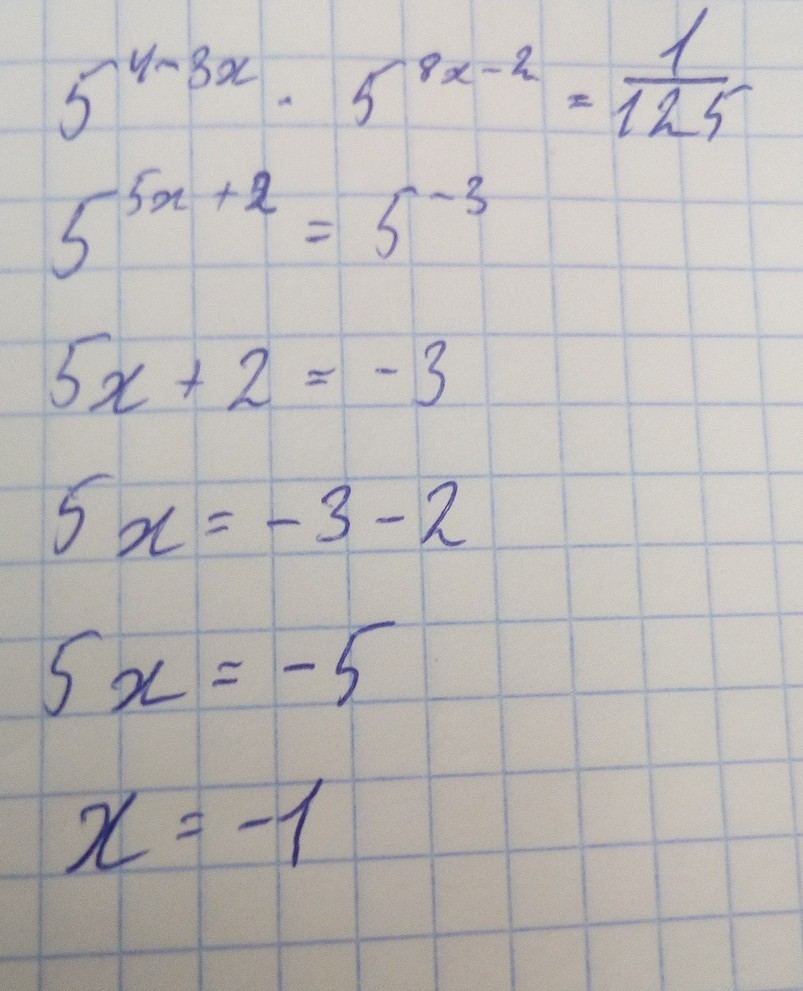 5^{4-3x} · 5^{8x-2} = \frac{1}{125}
5^{5x+2} = 5^{-3}
5x + 2 = -3
5x = -3 - 2
5x = -5
x = -1